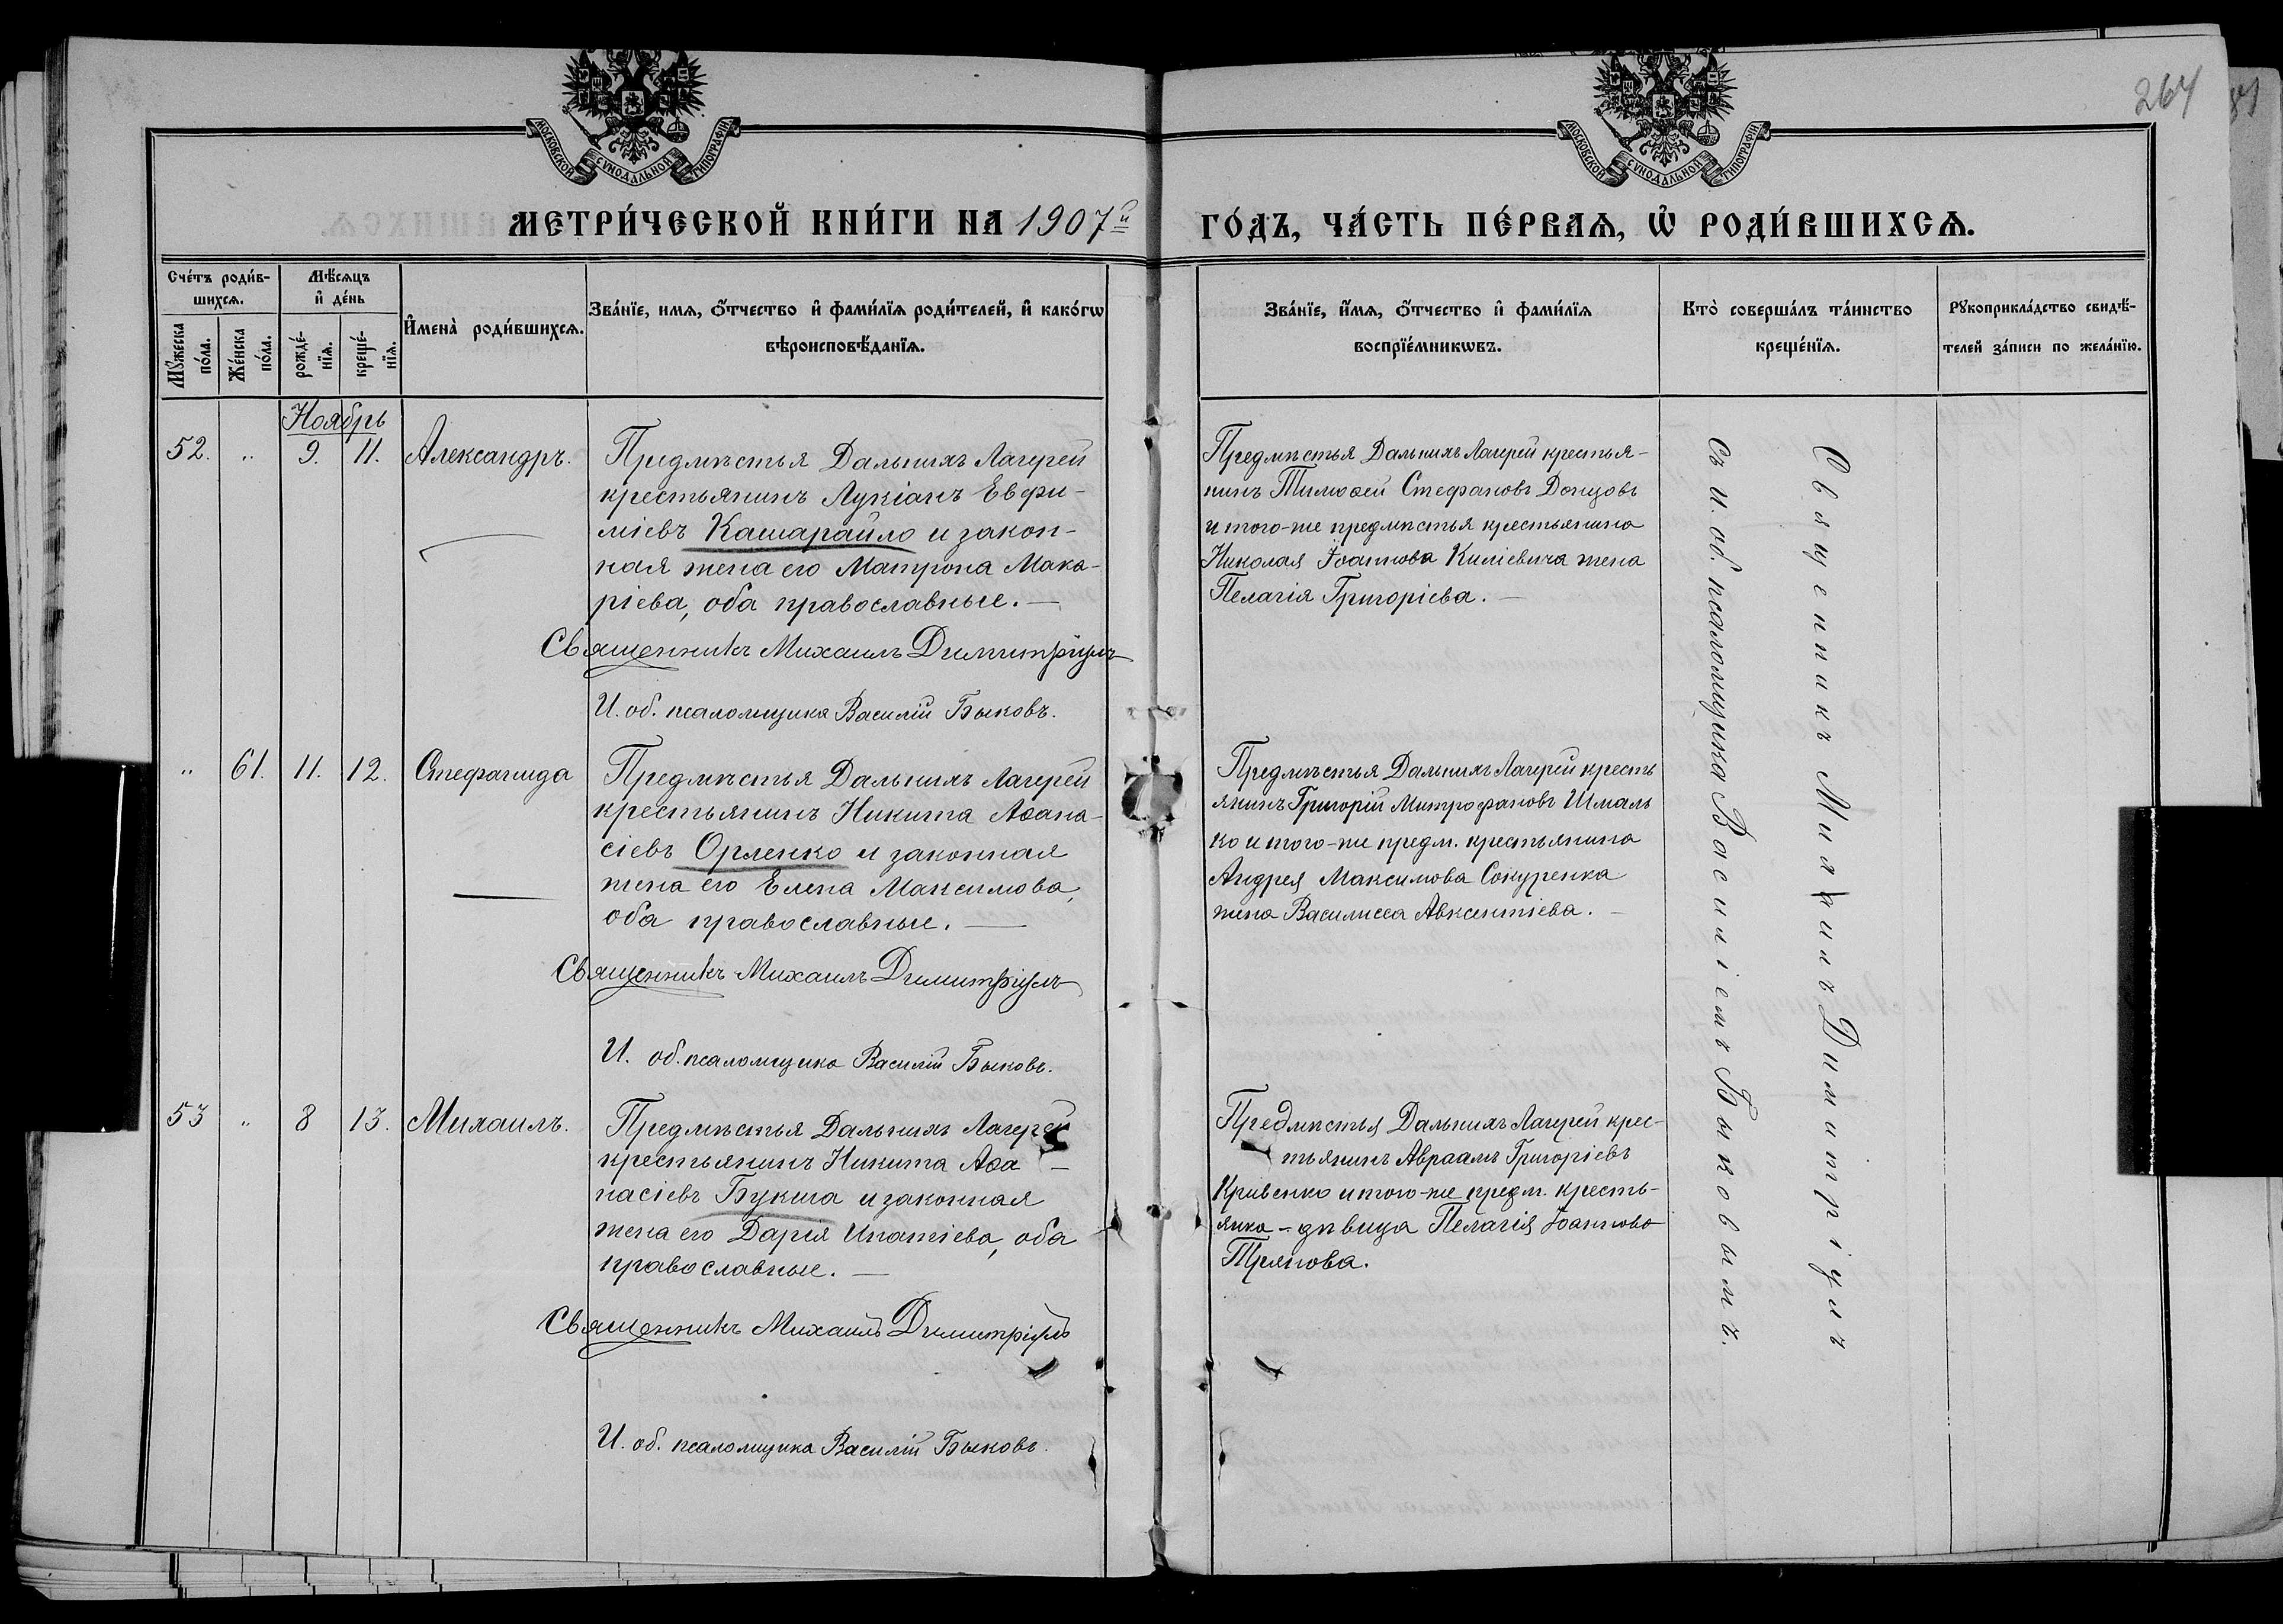 264
МОСКОВСКОЙ СУНОДАЛЬНОЙ ТИПОГРАФІИ
МОСКОВСКОЙ СУНОДАЛЬНОЙ ТИПОГРАФІИ
МЕТРИ́ЧЕСКОЙ КНИ́ГИ НА 1907й
ГО́ДЪ, ЧА́СТЬ ПЕ́РВАѦ, Ѡ҆ РОДИ́ВШИХСѦ.
Сче́тъ роди́в-
шихсѧ.
Мѣ́сѧцъ
и҆ де́нь
Мꙋ́жеска
по́ла.
Же́нска
по́ла.
рожде́-
нїѧ.
креще́-
нїѧ.
И҆мена̀ роди́вшихсѧ.
Зва́нїе, имѧ, ѻ҆́тчество и҆ фами́лїѧ роди́телей, и҆ како́гѡ
вѣроисповѣ́данїѧ.
Зва́нїе, и҆́мѧ, ѻ҆́тчество и҆ фами́лїѧ
воспрїе́мникѡвъ.
Кто̀ соверша́лъ та́инство
креще́нїѧ.
Рꙋкоприкла́дство свидѣ́-
телей за́писи по жела́нїю.
Ноябрь
52. " 9. 11. Александръ.
Предмѣстья Дальнихъ Лагерей
крестьянинъ Лукіанъ Евфи-
міевъ Кашарайло и закон-
ная жена его Матрона Мака-
ріева, оба православные.
Священникъ Михаилъ Димитріулъ
И. об. псаломщика Василій Быковъ.
Предмѣстья Дальнихъ Лагерей крестья-
нинъ Тимоѳей Стефановъ Донцовъ
и того-же предмѣстья крестьянина
Николая Іоаннова Киліевича жена
Пелагія Григоріева.
" 61. 11. 12. Стефанида
Предмѣстья Дальнихъ Лагерей
крестьянинъ Никита Аѳана-
сіевъ Орленко и законная
жена его Елена Максимова,
оба православные.
Священникъ Михаилъ Димитріулъ
И. об. псаломщика Василій Быковъ.
Предмѣстья Дальнихъ Лагерей кресть
янинъ Григорій Митрофановъ Шмаль
ко и того-же предм. крестьянина
Андрея Максимова Сокуренка
жена Василисса Авксентіева.
53 " 8 13. Михаилъ.
Предмѣстья Дальнихъ Лагерей
крестьянинъ Никита Аѳа-
насіевъ Букша и законная
жена его Дарія Ипатіева, оба
православные.
Священникъ Михаилъ Димитріулъ
И. об. псаломщика Василій Быковъ.
Предмѣстья Дальнихъ Лагерей крес-
тьянинъ Авраамъ Григоріевъ
Кривенко и того-же предм. кресть-
янка - дѣвица Пелагія Іоаннова
Священникъ Михаилъ Димитріулъ
съ и. об. псаломщика Василіемъ Быковымъ.